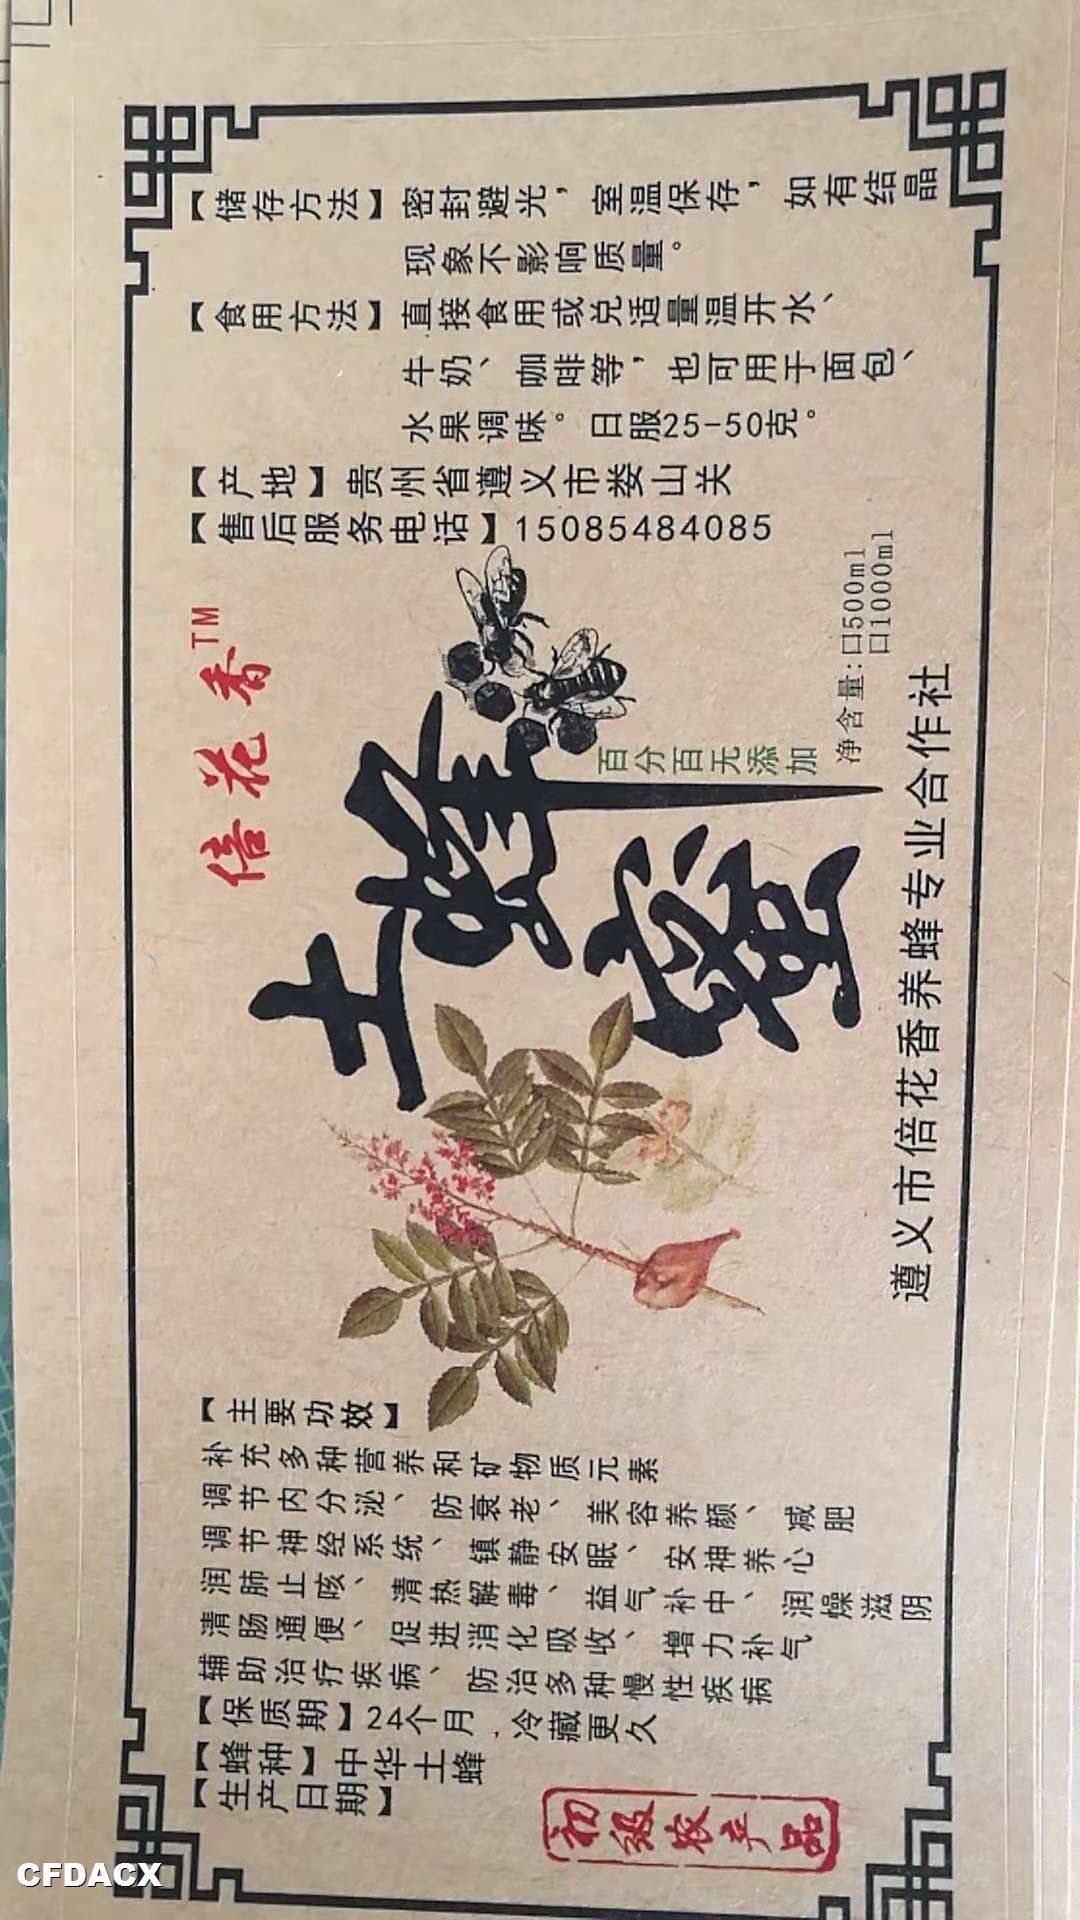 【主要功效】
补充多种营养和矿物质元素
调节内分泌、防衰老、美容养颜、减肥
调节神经系统、镇静安眠、安神养心
润肺止咳、清热解毒、益气补中、润燥滋阴
清肠通便、促进消化吸收、增力补气
辅助治疗疾病、防治多种慢性疾病
【保质期】24个月，冷藏更久
【蜂种】中华土蜂
【生产日期】
初级农产品
倍花香TM
土蜂蜜
百分百无添加
净含量:口500ml
口1000ml
遵义市倍花香养蜂专业合作社
【储存方法】密封避光，室温保存，如有结晶
现象不影响质量。
【食用方法】直接食用或兑适量温开水、
牛奶、咖啡等，也可用于面包、
水果调味。日服25-50克。
【产地】贵州省遵义市娄山关
【售后服务电话】15085484085
CFDACX